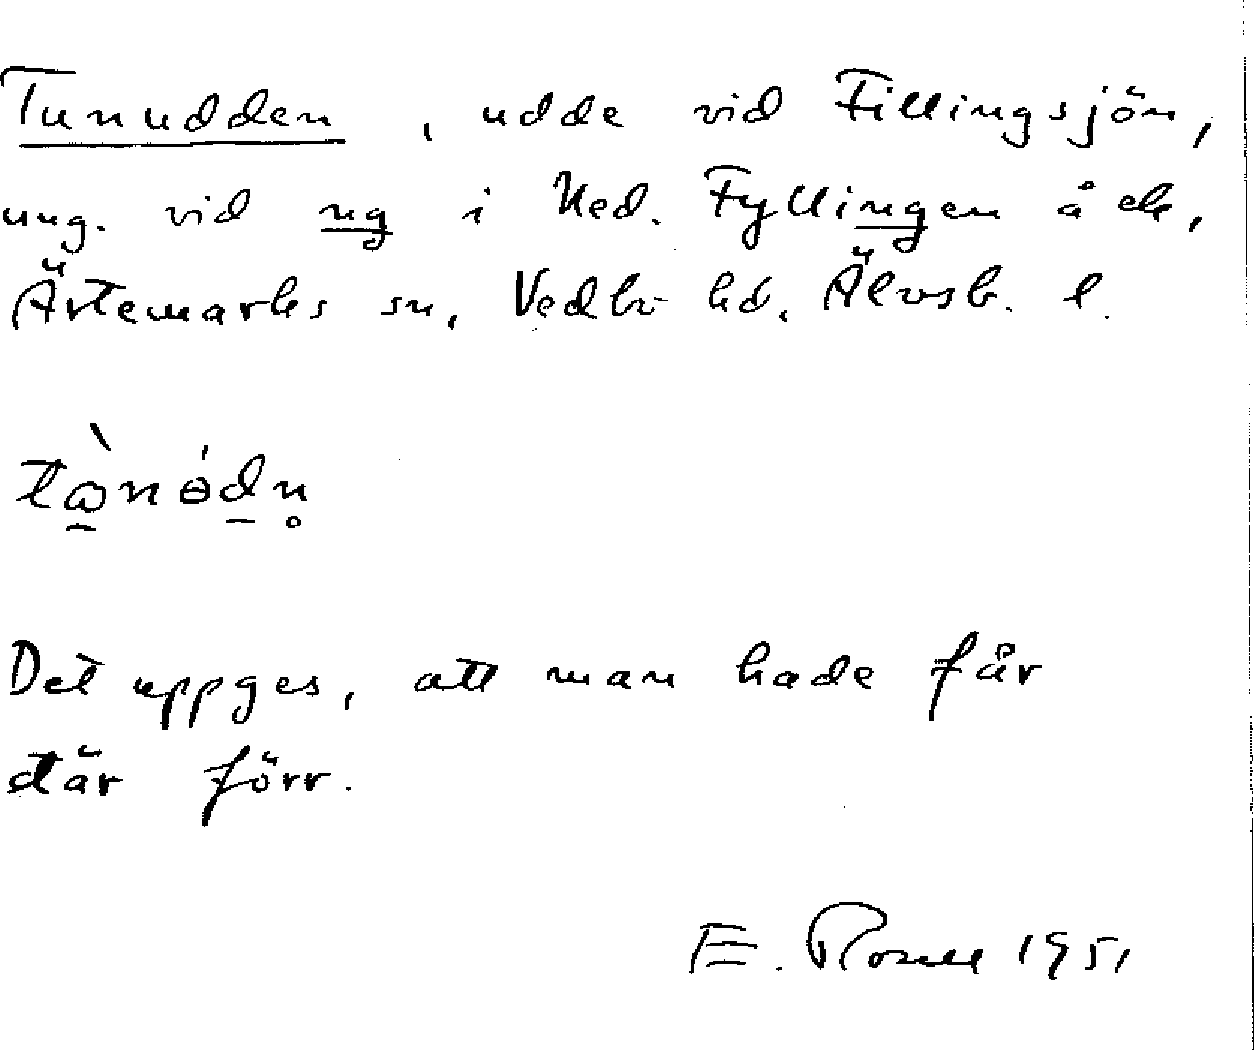 Tunudden, udde vid Fillingsjön,
ung. vid ng i Ned. Fyllingen å ek,
Ärtemarks sn, Vedbo hd, Älvsb. l.
tꞷ̀nɵ́dn̥
Det uppges, att man hade får
där förr.
E. Rosell 1951